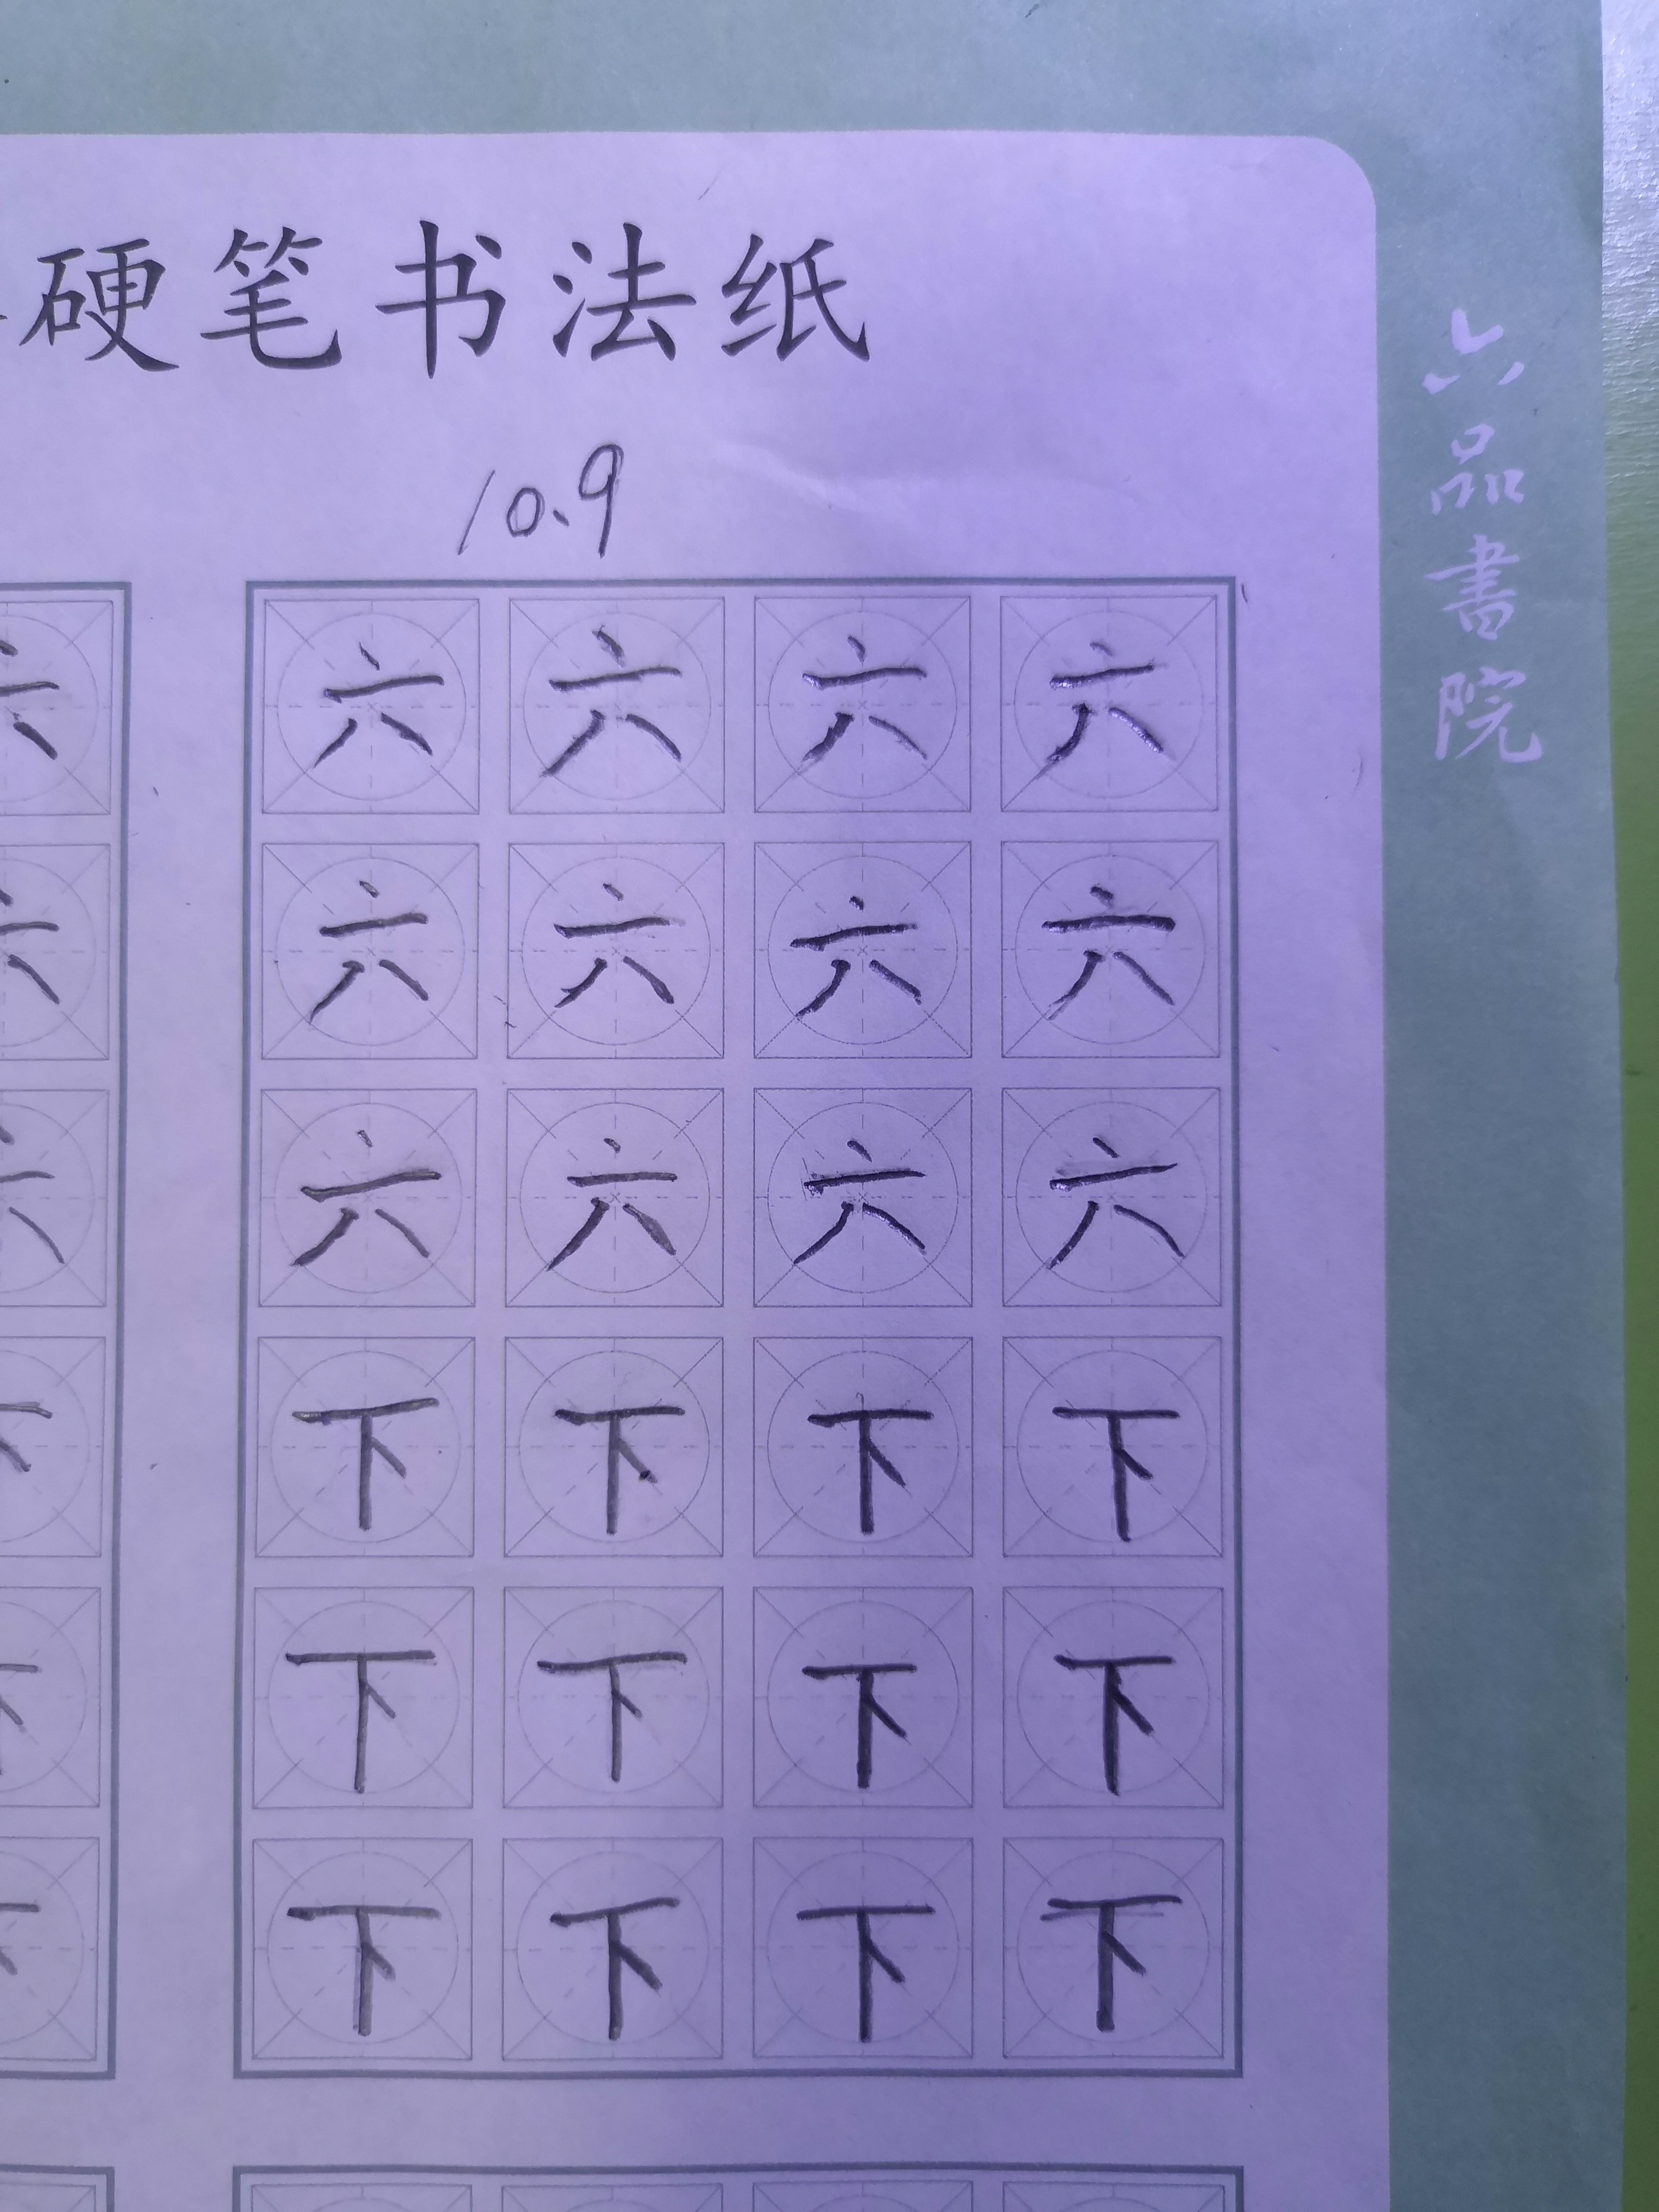 硬笔书法纸
10.9
六 六 六 六 六
六 六 六 六 六
六 六 六 六 六
下 下 下 下 下
下 下 下 下 下
下 下 下 下 下
六品書院